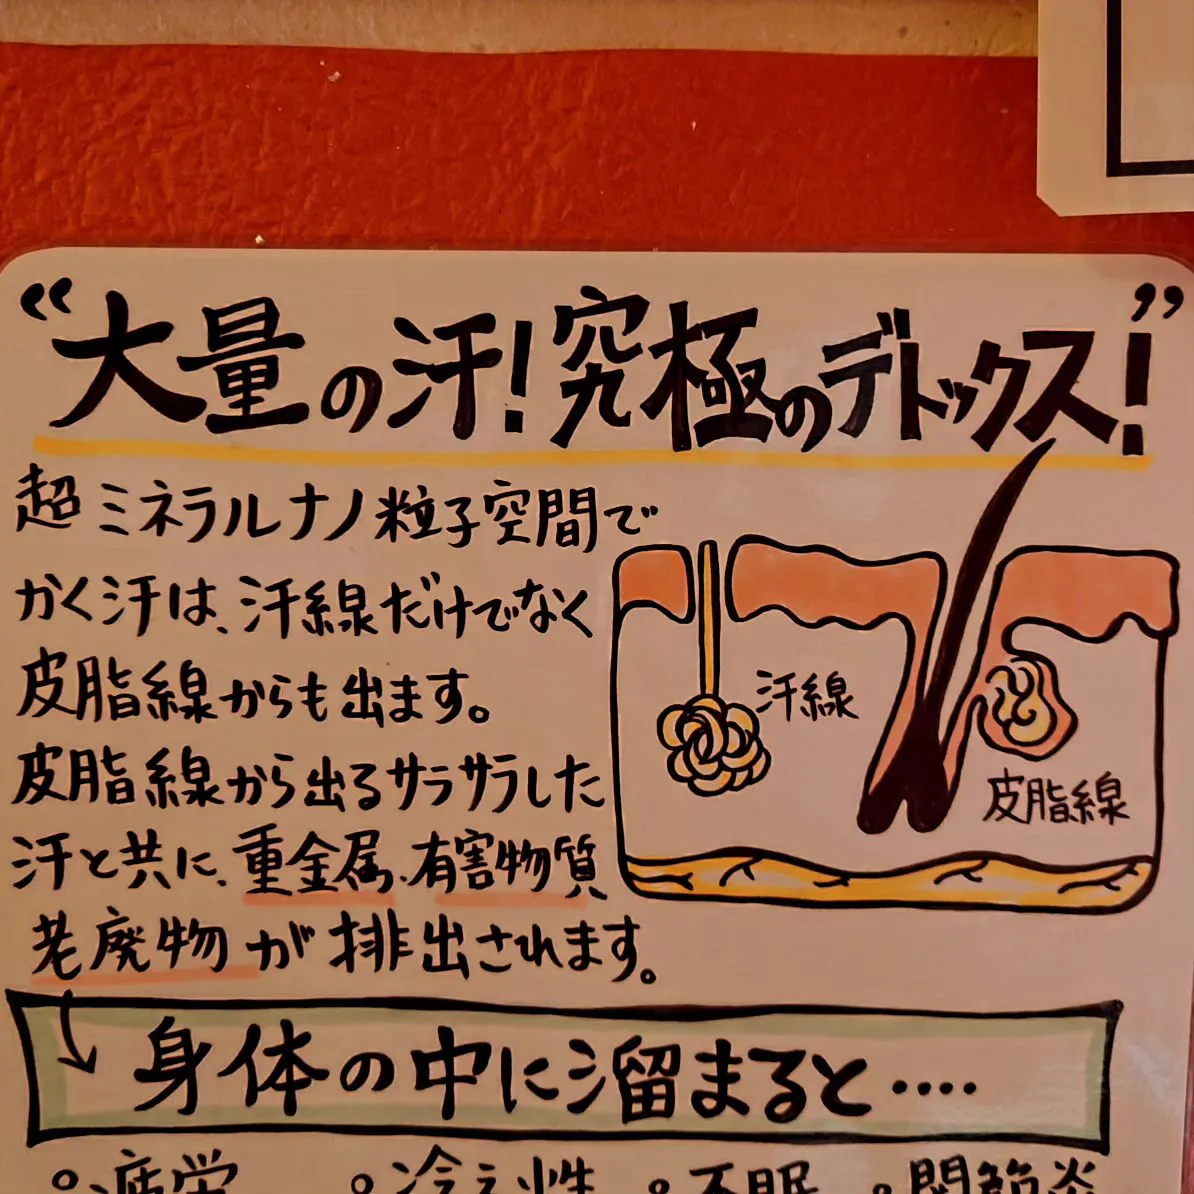 “大量の汗!究極のデトックス!”
超ミネラルナノ粒子空間で
かく汗は、汗線だけでなく
皮脂線からも出ます。
皮脂線から出るサラサラした
汗と共に、重金属、有害物質
老廃物が排出されます。
汗線
皮脂線
身体の中に溜まると‥‥
○疲労 ○冷え性 ○不眠 ○関節炎